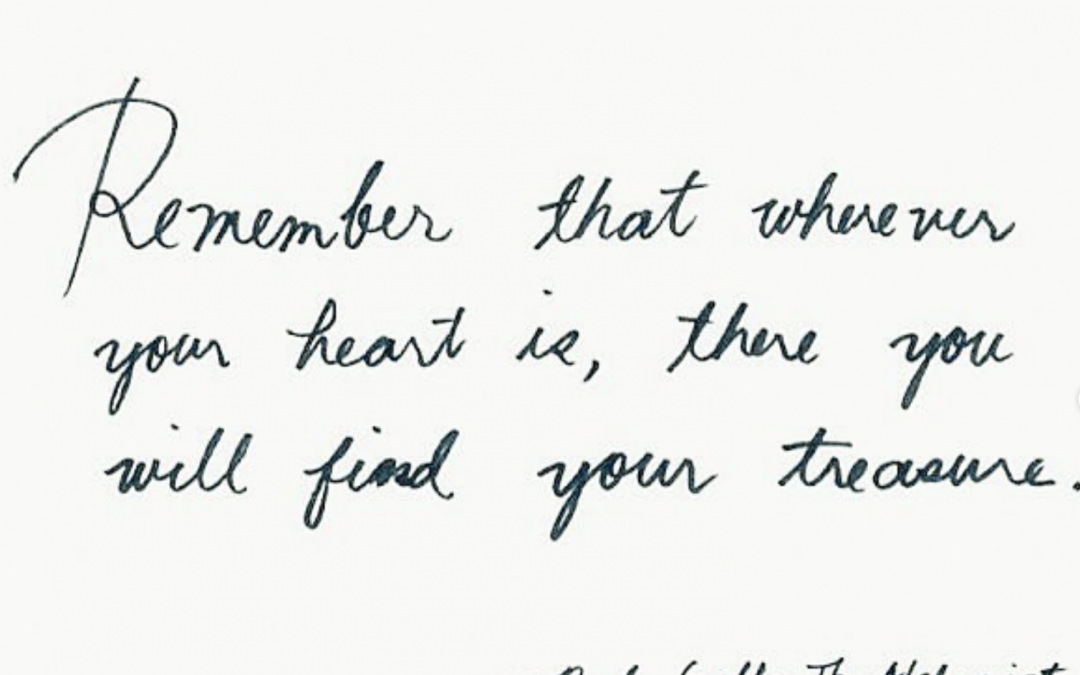 Remember that wherever
your heart is, there you
will find your treasure.